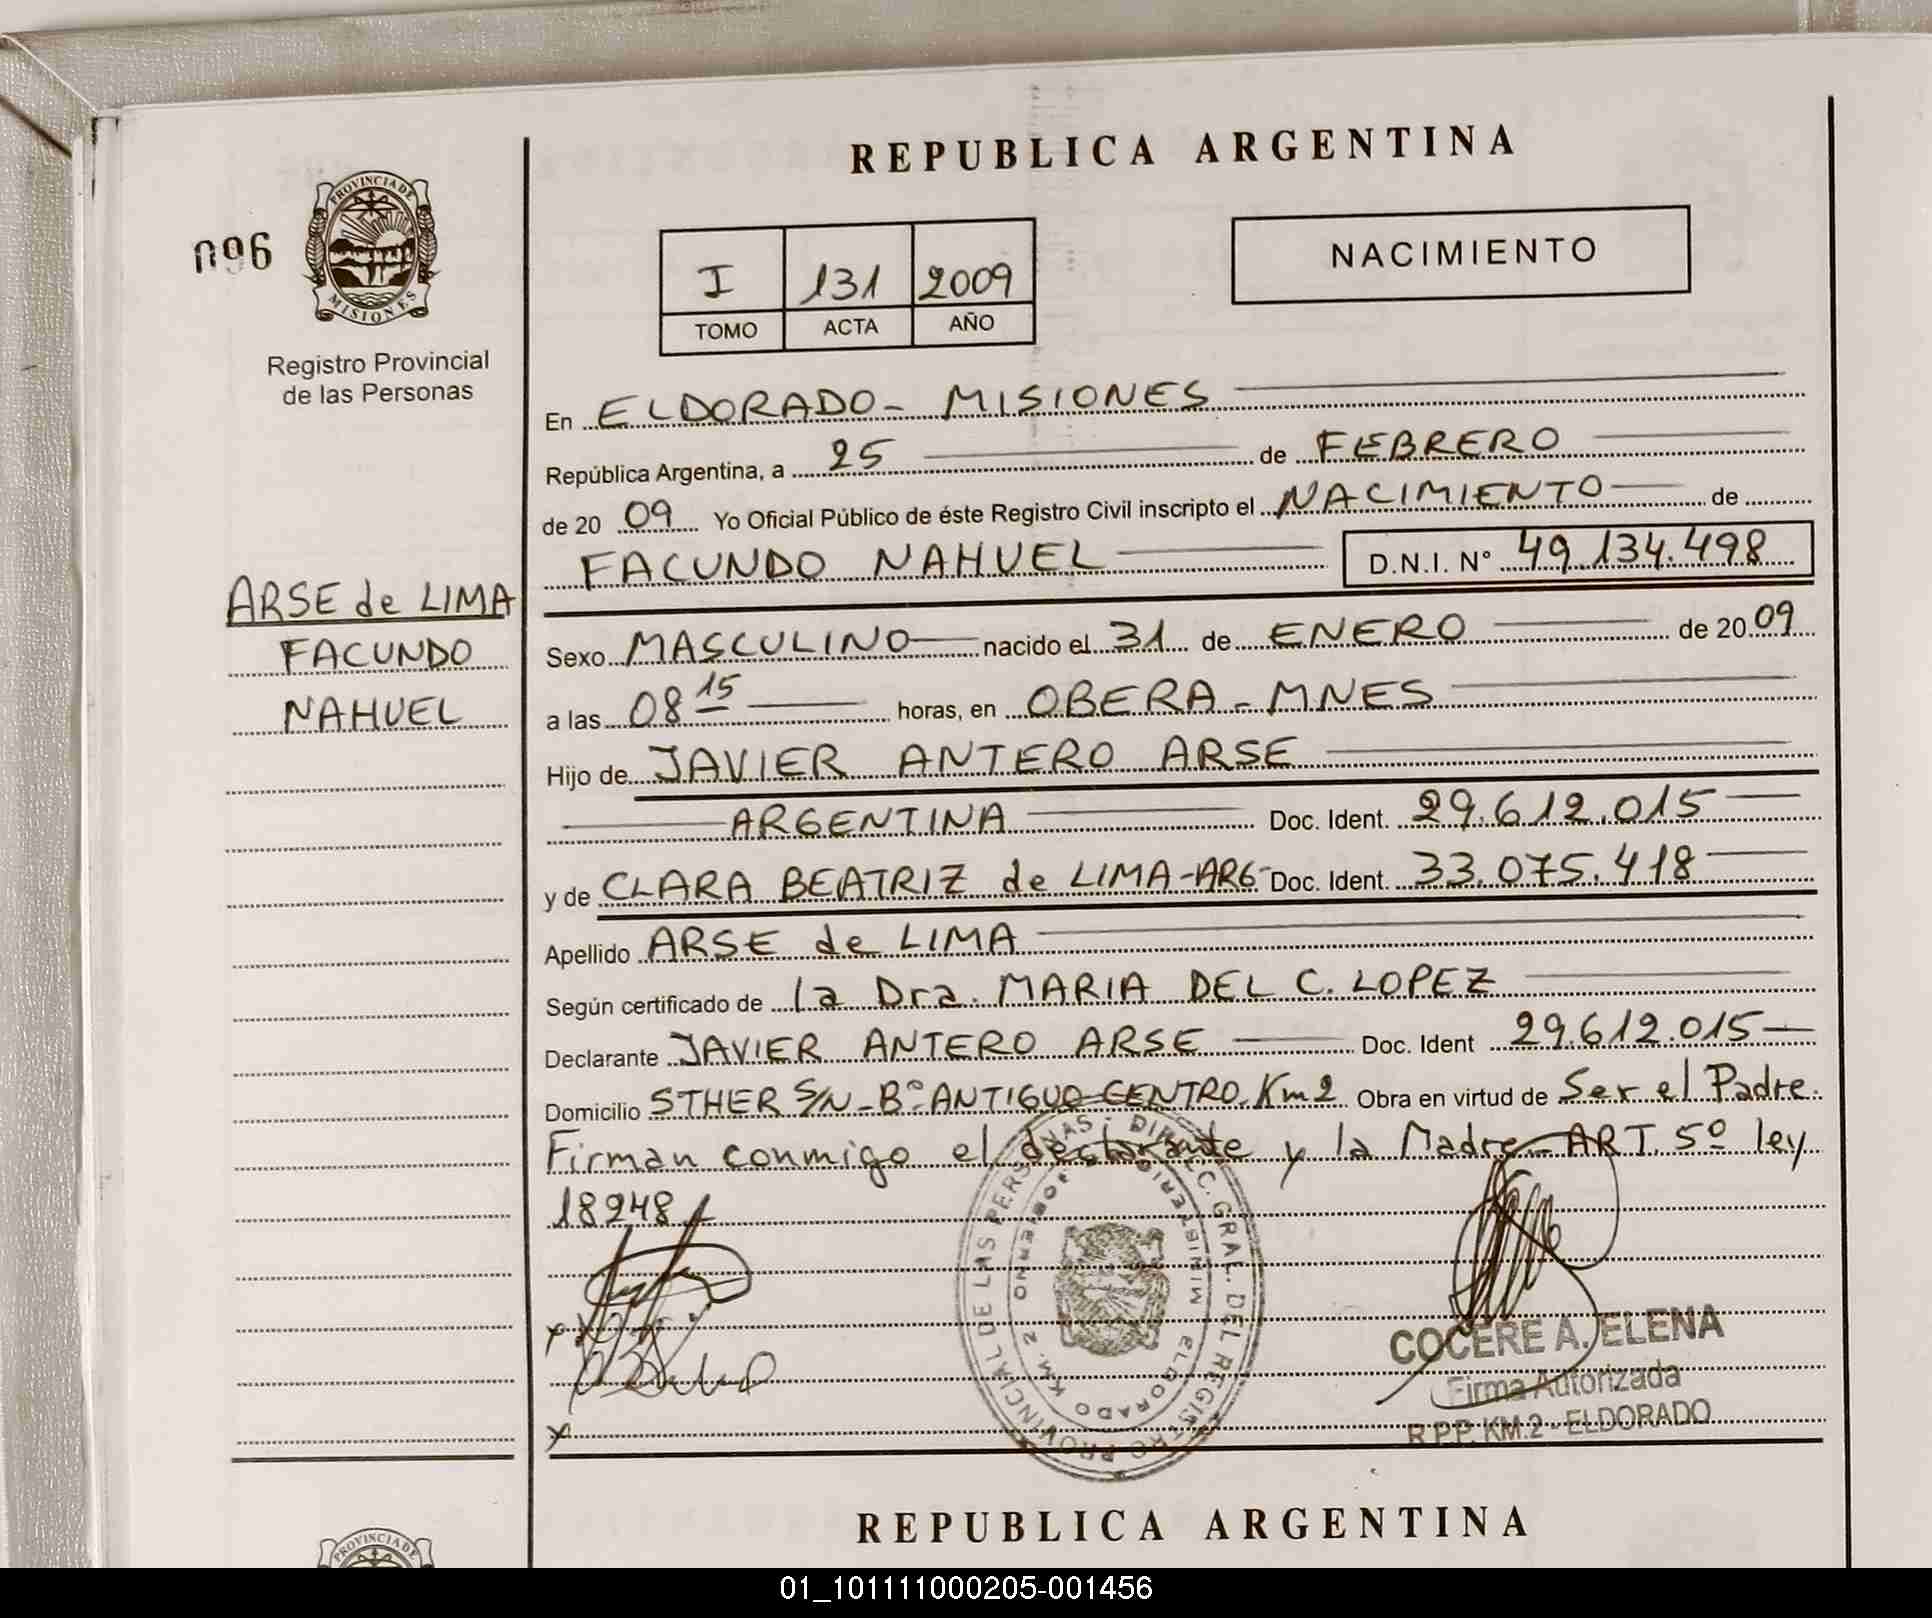 REPUBLICA ARGENTINA
096
PROVINCIA DE
MISIONES
Registro Provincial
de las Personas
I 131 2009
TOMO ACTA AÑO
NACIMIENTO
En ELDORADO - MISIONES
República Argentina, a 25 de FEBRERO
de 20 09 Yo Oficial Público de éste Registro Civil inscripto el NACIMIENTO de
FACUNDO NAHUEL D.N.I. N° 49.134.498
ARSE de LIMA
FACUNDO
NAHUEL
Sexo MASCULINO nacido el 31 de ENERO de 20 09
a las 08 15 horas, en OBERA - MNES
Hijo de JAVIER ANTERO ARSE
ARGENTINA Doc. Ident. 29.612.015
y de CLARA BEATRIZ de LIMA-ARG- Doc. Ident. 33.075.418
Apellido ARSE de LIMA
Según certificado de la Dra. MARIA DEL C. LOPEZ
Declarante JAVIER ANTERO ARSE Doc. Ident 29.612.015
Domicilio STHER S/N - B° ANTIGUO CENTRO. Km 2 Obra en virtud de Ser el Padre.
Firman conmigo el declarante y la Madre - ART. 5º ley
18248
DIREC. GRAL. DEL REGISTRO PROVINCIAL DE LAS PERSONAS
MINISTERIO ELDORADO KM. 2
COCERE A. ELENA
Firma Autorizada
R.P.P. KM.2 - ELDORADO
REPUBLICA ARGENTINA
PROVINCIA DE
01_101111000205-001456